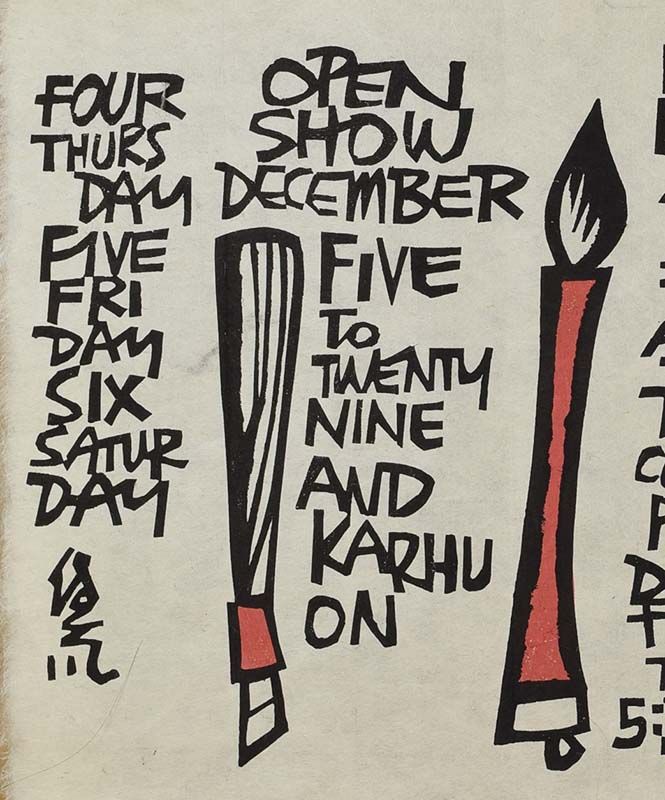 FOUR
THURS
DAY
FIVE
FRI
DAY
SIX
SATUR
DAY
OPEN
SHOW
DECEMBER
FIVE
TO
TWENTY
NINE
AND
KARHU
ON